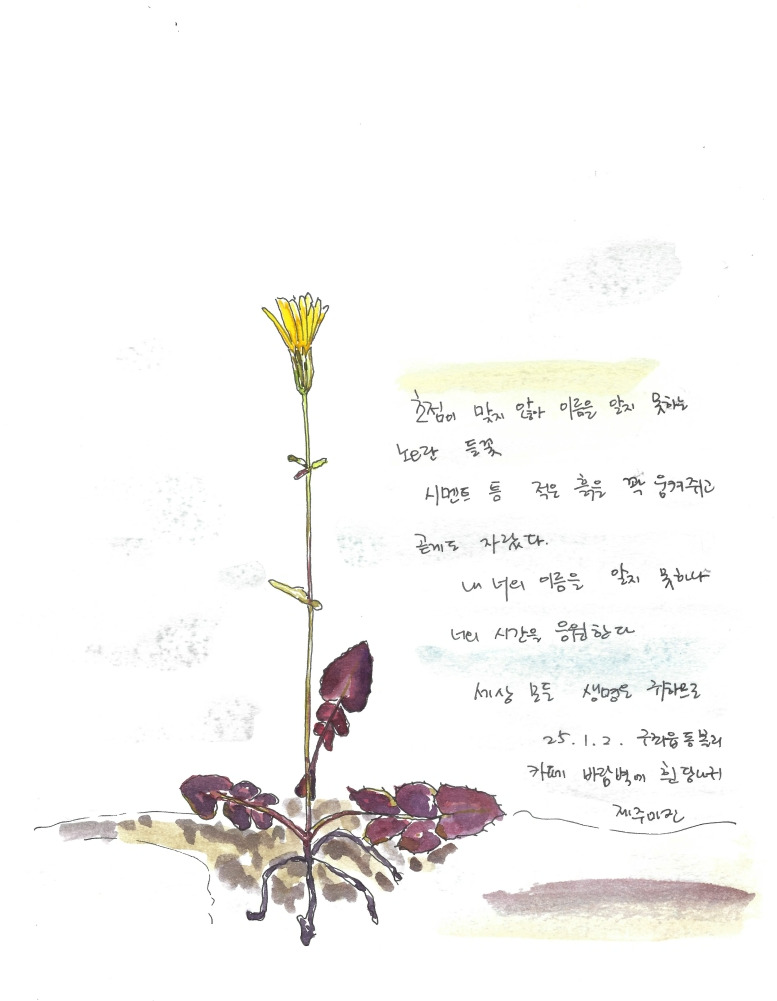 초점이 맞지 않아 이름을 알지 못하는
노란 들꽃
시멘트 틈 적은 흙을 꽉 움켜쥐고
곧게도 자랐다.
내 너의 이름을 알지 못하나
너의 시간을 응원한다
세상 모든 생명은 귀하므로
25.1.2. 구좌읍 동복리
카페 바람벽에 흰 당나귀
제주미진